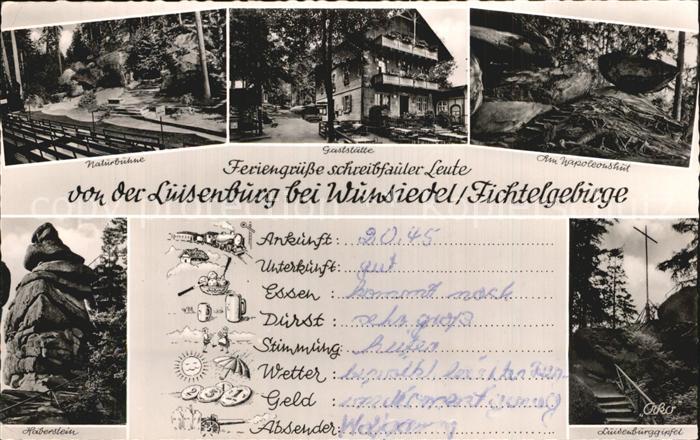 Naturbühne
Gaststätte
Am Napoleonshut
Feriengrüße schreibfauler Leute
von der Luisenburg bei Wunsiedel/Fichtelgebirge
Ankunft: 20.45
Unterkunft: gut
Essen: kommt noch
Durst: sehr groß
Stimmung:
Wetter
Geld
Absender:
Haberstein
Orko
Luisenburggipfel